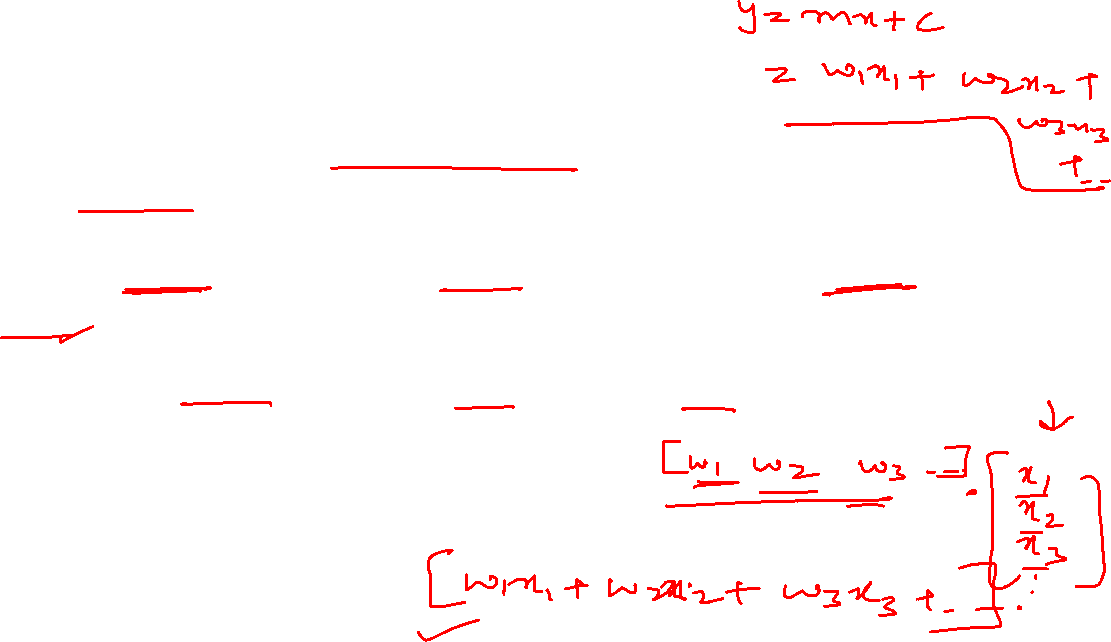 y = mx + c
= w1x1 + w2x2 +
w3x3
+ --
[w1 w2 w3 --] . [x1
x2
x3
:]
[w1x1 + w2x2 + w3x3 + ----]